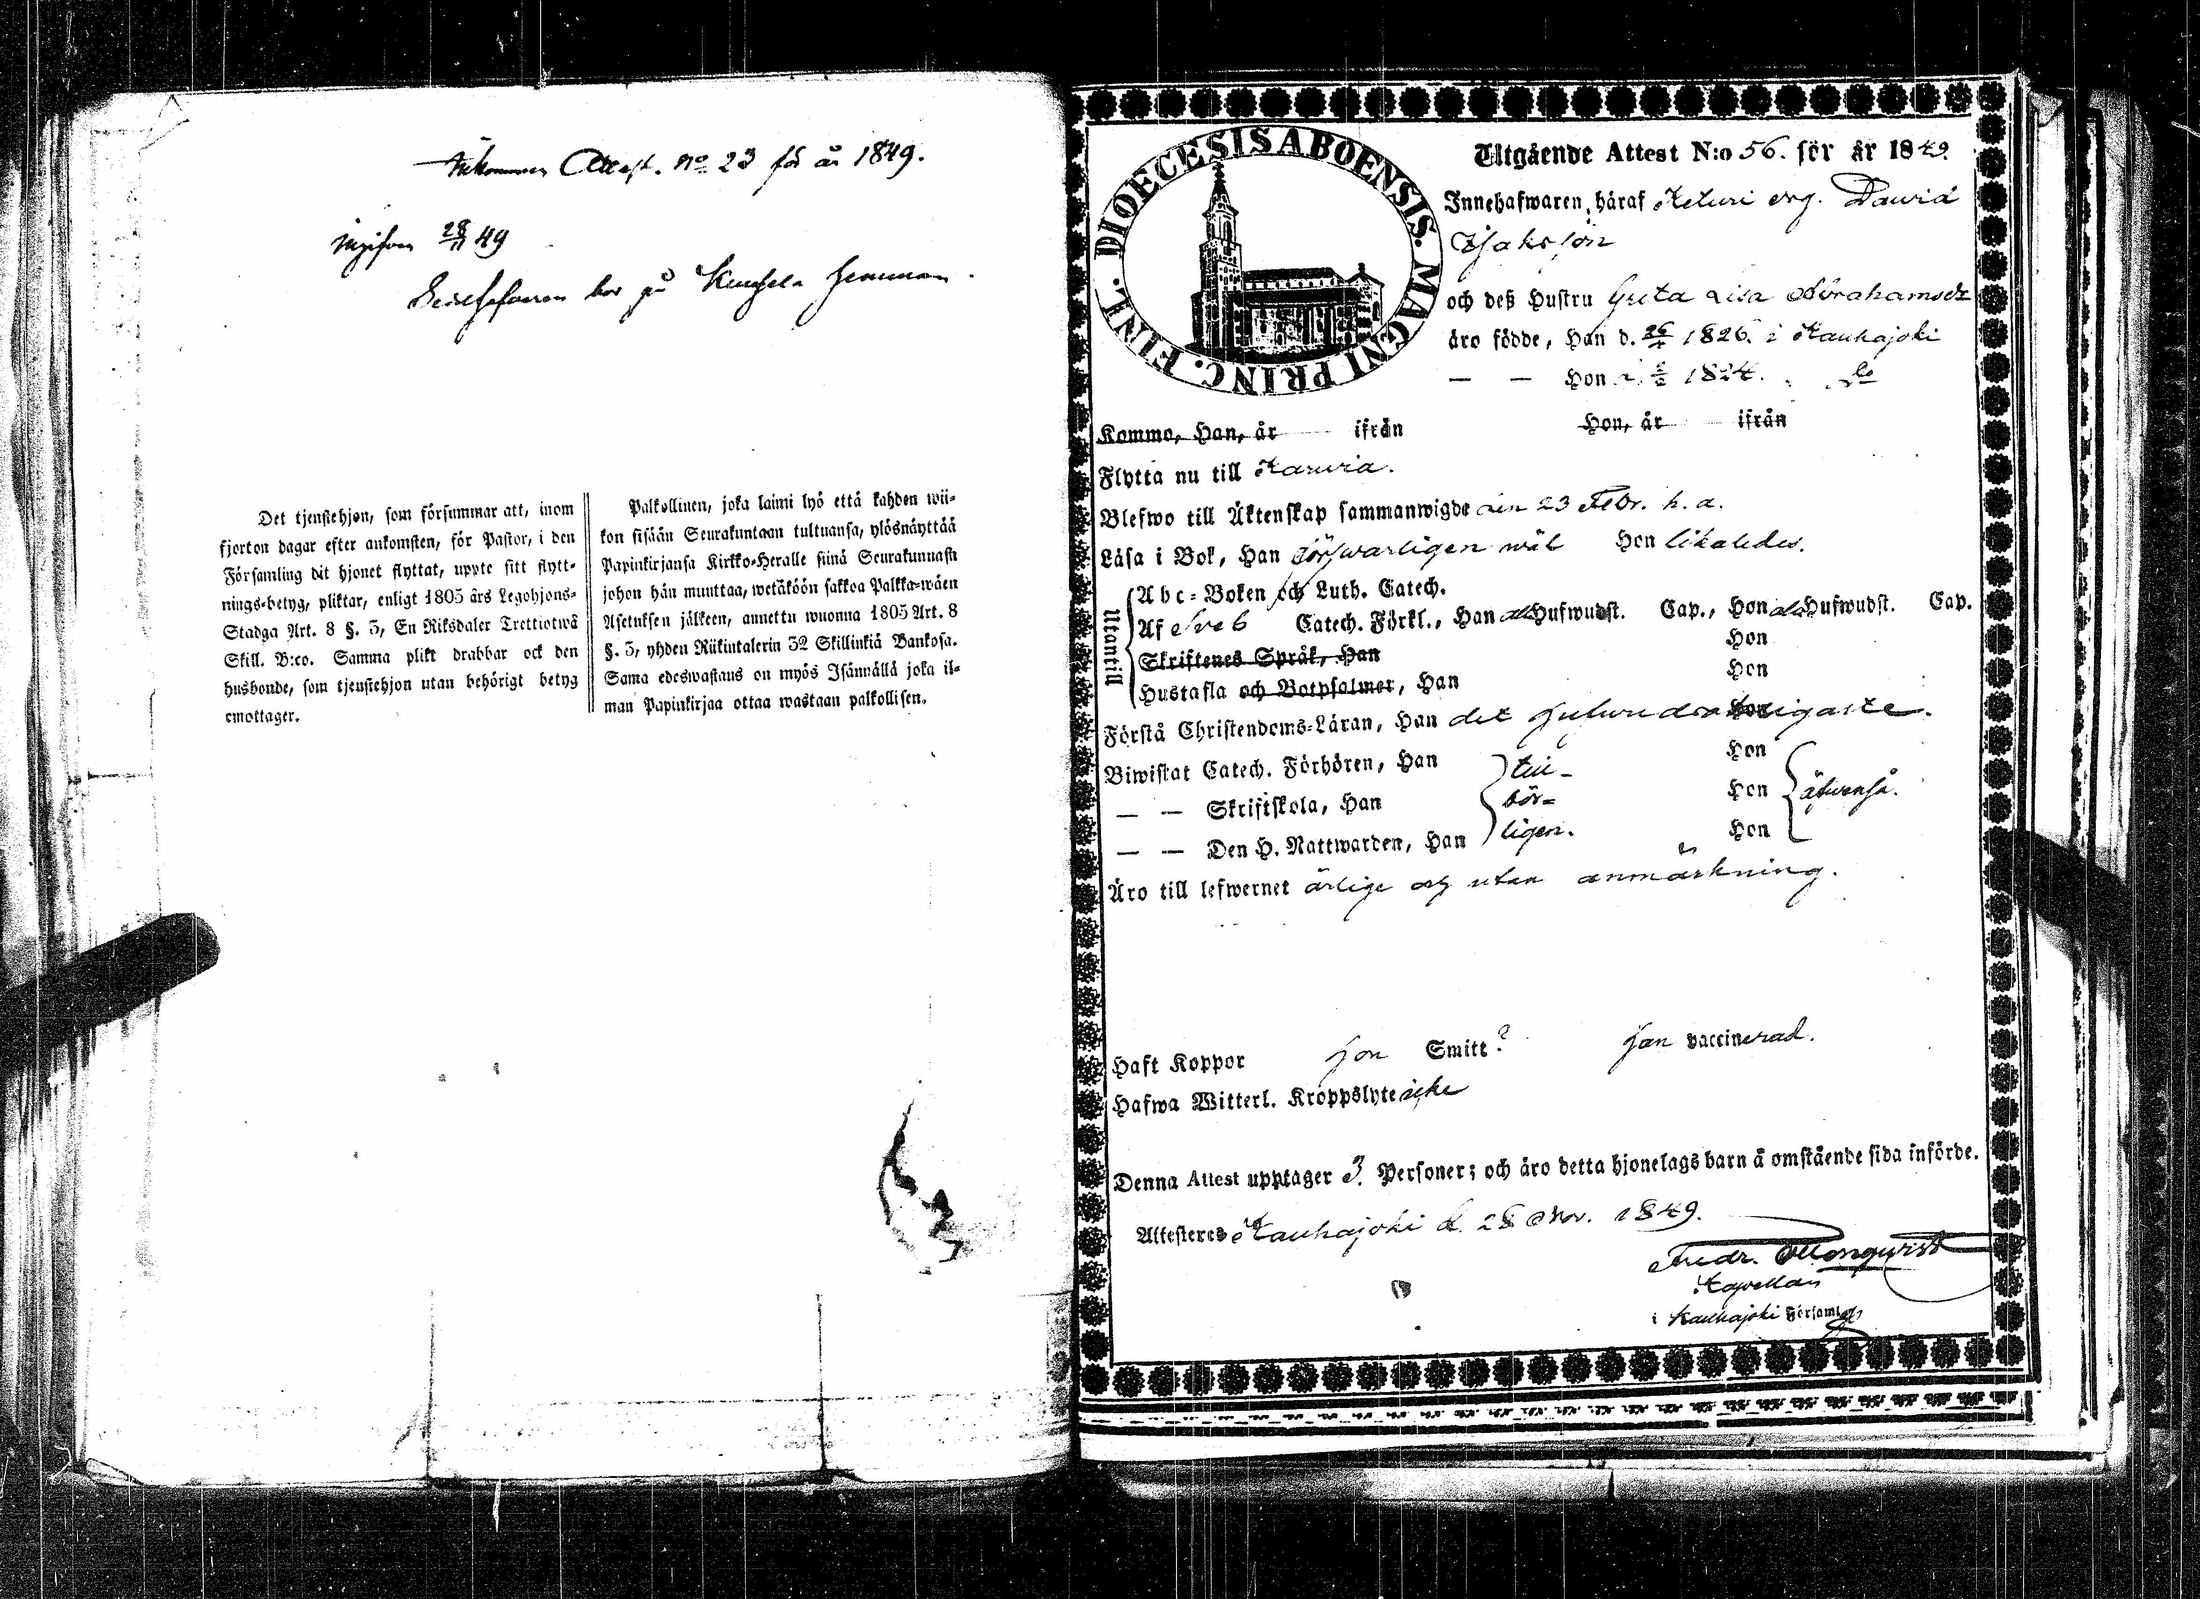 Inkommen Attest. No 23 för år 1849.
28/11 49
bor på hemman.
Det tjenstehjon, som försummar att, inom
fjorton dagar efter ankomsten, för Pastor, i den
Församling dit hjonet flyttat, uppte sitt flytt-
nings-betyg, pliktar, enligt 1805 års Legohjons-
Stadga Art. 8 §. 5, En Riksdaler Trettiotwå
Skill. B:co. Samma plikt drabbar ock den
husbonde, som tjenstehjon utan behörigt betyg
emottager.
Palkollinen, joka laimi lyö että kahden wii-
kon sisään Seurakuntaan tultuansa, ylösnäyttää
Papinkirjansa Kirkko-Heralle siinä Seurakunnasa
johon hän muuttaa, wetäköön sakkoa Palkka-wäen
Asetuksen jälkeen, annettu wuonna 1805 Art. 8
§. 5, yhden Riikintalerin 32 Skillinkiä Bankosa.
Sama edeswastaus on myös Isännällä joka il-
man Papinkirjaa ottaa wastaan palkollisen.
DIOECESIS ABOENSIS. MAGNI PRINC. FINL.
Utgående Attest N:o 56. för år 1849.
Innehafwaren, häraf Keturi Dawid
Isaksson
och deß Hustru Greta Lisa Abrahamsdr
äro födde, Han d. 1826. i Kauhajoki
— — Hon 1824. do
Komma, Han, år ifrån Hon, år ifrån
Flytta nu till Karwia.
Blefwo till Äktenskap sammanwigde den 23 Febr. h. a.
Läsa i Bok, Han förswarligen wäl Hon likaledes.
Utantill
Abc-Boken och Luth. Catech.
Af Sveb Catech. Förkl., Han alla Hufwudst. Cap., Hon alla Hufwudst. Cap.
Skriftenes Språk, Han Hon
Hustafla och Botpsalmer, Han Hon
Förstå Christendoms-Läran, Han det hufwudsakligaste. Hon
Biwistat Catech. Förhören, Han till- Hon
— — Skriftskola, Han bör- Hon äfwenså.
— — Den H. Nattwarden, Han ligen. Hon
Äro till lefwernet ärlige och utan anmärkning.
Haft Koppor Hon Smitt? Han vaccinerad.
Hafwa Witterl. Kroppslyte icke
Denna Attest upptager 3. Personer; och äro detta hjonelags barn å omstående sida införde.
Attesteres Kauhajoki d. 28 Nov. 1849.
Fredr.
Kapellan
i Kauhajoki Församl